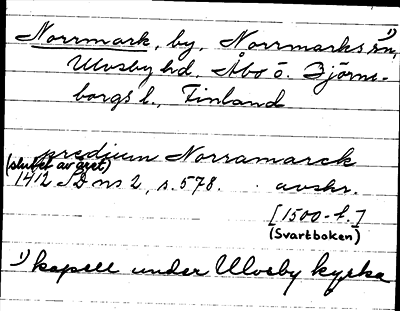 Norrmark, by, Norrmarks sn, 1)
Ulvsby hd, Åbo o. Björne-
borgs l., Finland
predium Norramarck
(slutet av året)
1412 SD ns 2, s. 578. avskr.
[1500-t.]
(Svartboken)
1) kapell under Ulvsby kyrka